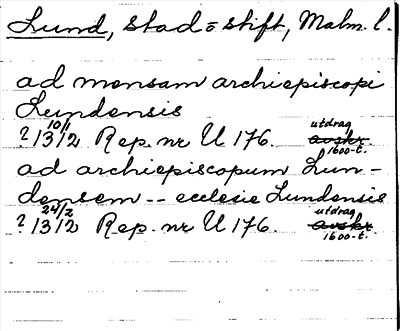 Lund, stad o stift, Malm. l.
ad mensam archiepiscopi
Lundensis
? 10/1 1312 Rep. nr U 176. utdrag avskr. 1600-t.
ad archiepiscopum Lun-
densem -- ecclesie Lundensis
? 24/2 1312 Rep. nr U 176. utdrag avskr. 1600-t.